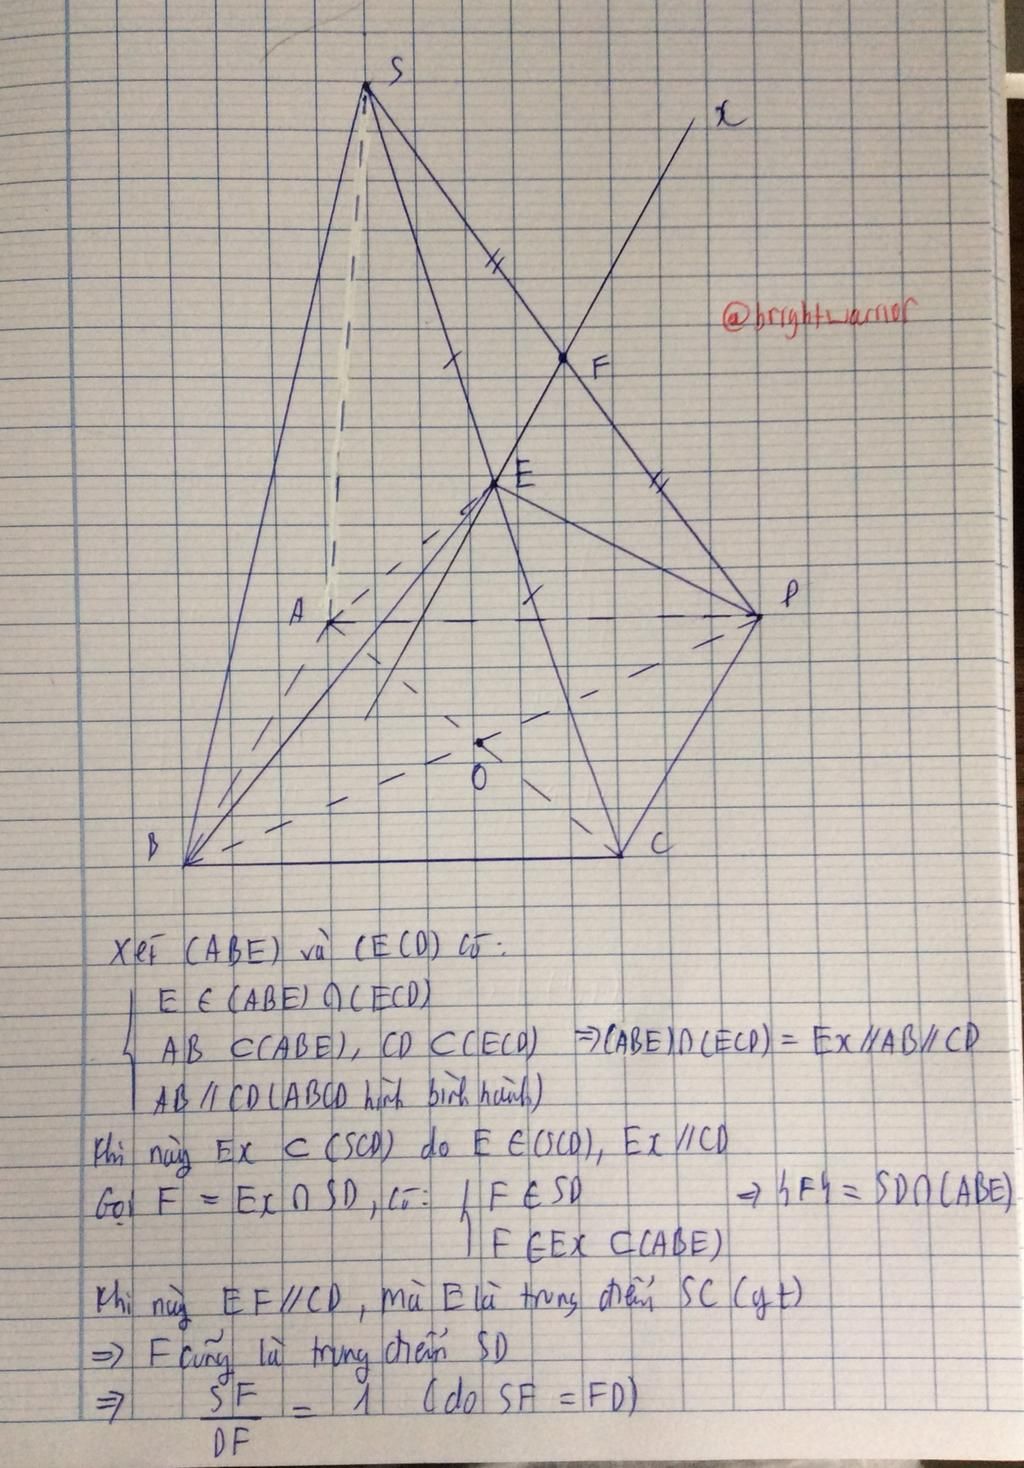 S
x
@brightwarrior
F
E
A
D
O
B
C
Xét (ABE) và (ECD) có:
E ∈ (ABE) ∩ (ECD)
AB ⊂ (ABE), CD ⊂ (ECD) ⇒ (ABE) ∩ (ECD) = Ex // AB // CD
AB // CD (ABCD hình bình hành)
Khi này Ex ⊂ (SCD) do E ∈ (SCD), Ex // CD
Gọi F = Ex ∩ SD, có: { F ∈ SD ⇒ {F} = SD ∩ (ABE)
F ∈ Ex ⊂ (ABE)
Khi này EF // CD, mà E là trung điểm SC (gt)
⇒ F cũng là trung điểm SD
⇒ SF/DF = 1 (do SF = FD)